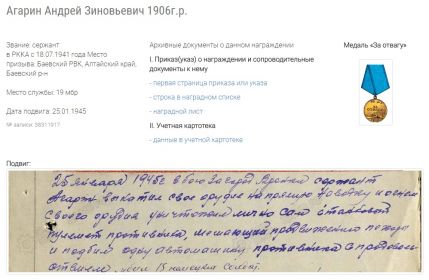 Агарин Андрей Зиновьевич 1906г.р.
Звание: сержант
в РККА с 18.07.1941 года Место
призыва: Баевский РВК, Алтайский край,
Баевский р-н
Место службы: 19 мбр
Дата подвига: 25.01.1945
№ записи: 38311917
Архивные документы о данном награждении:
I. Приказ(указ) о награждении и сопроводительные
документы к нему
- первая страница приказа или указа
- строка в наградном списке
- наградной лист
II. Учетная картотека
- данные в учетной картотеке
Медаль «За отвагу»
Подвиг:
25 января 1945г в бою за город сержант
Агарин выкатил свое орудие на прямую наводку и огнем
своего орудия уничтожил лично сам станковый
пулемет противника, мешающий продвижению пехоты
и подбил одну автомашину противника с